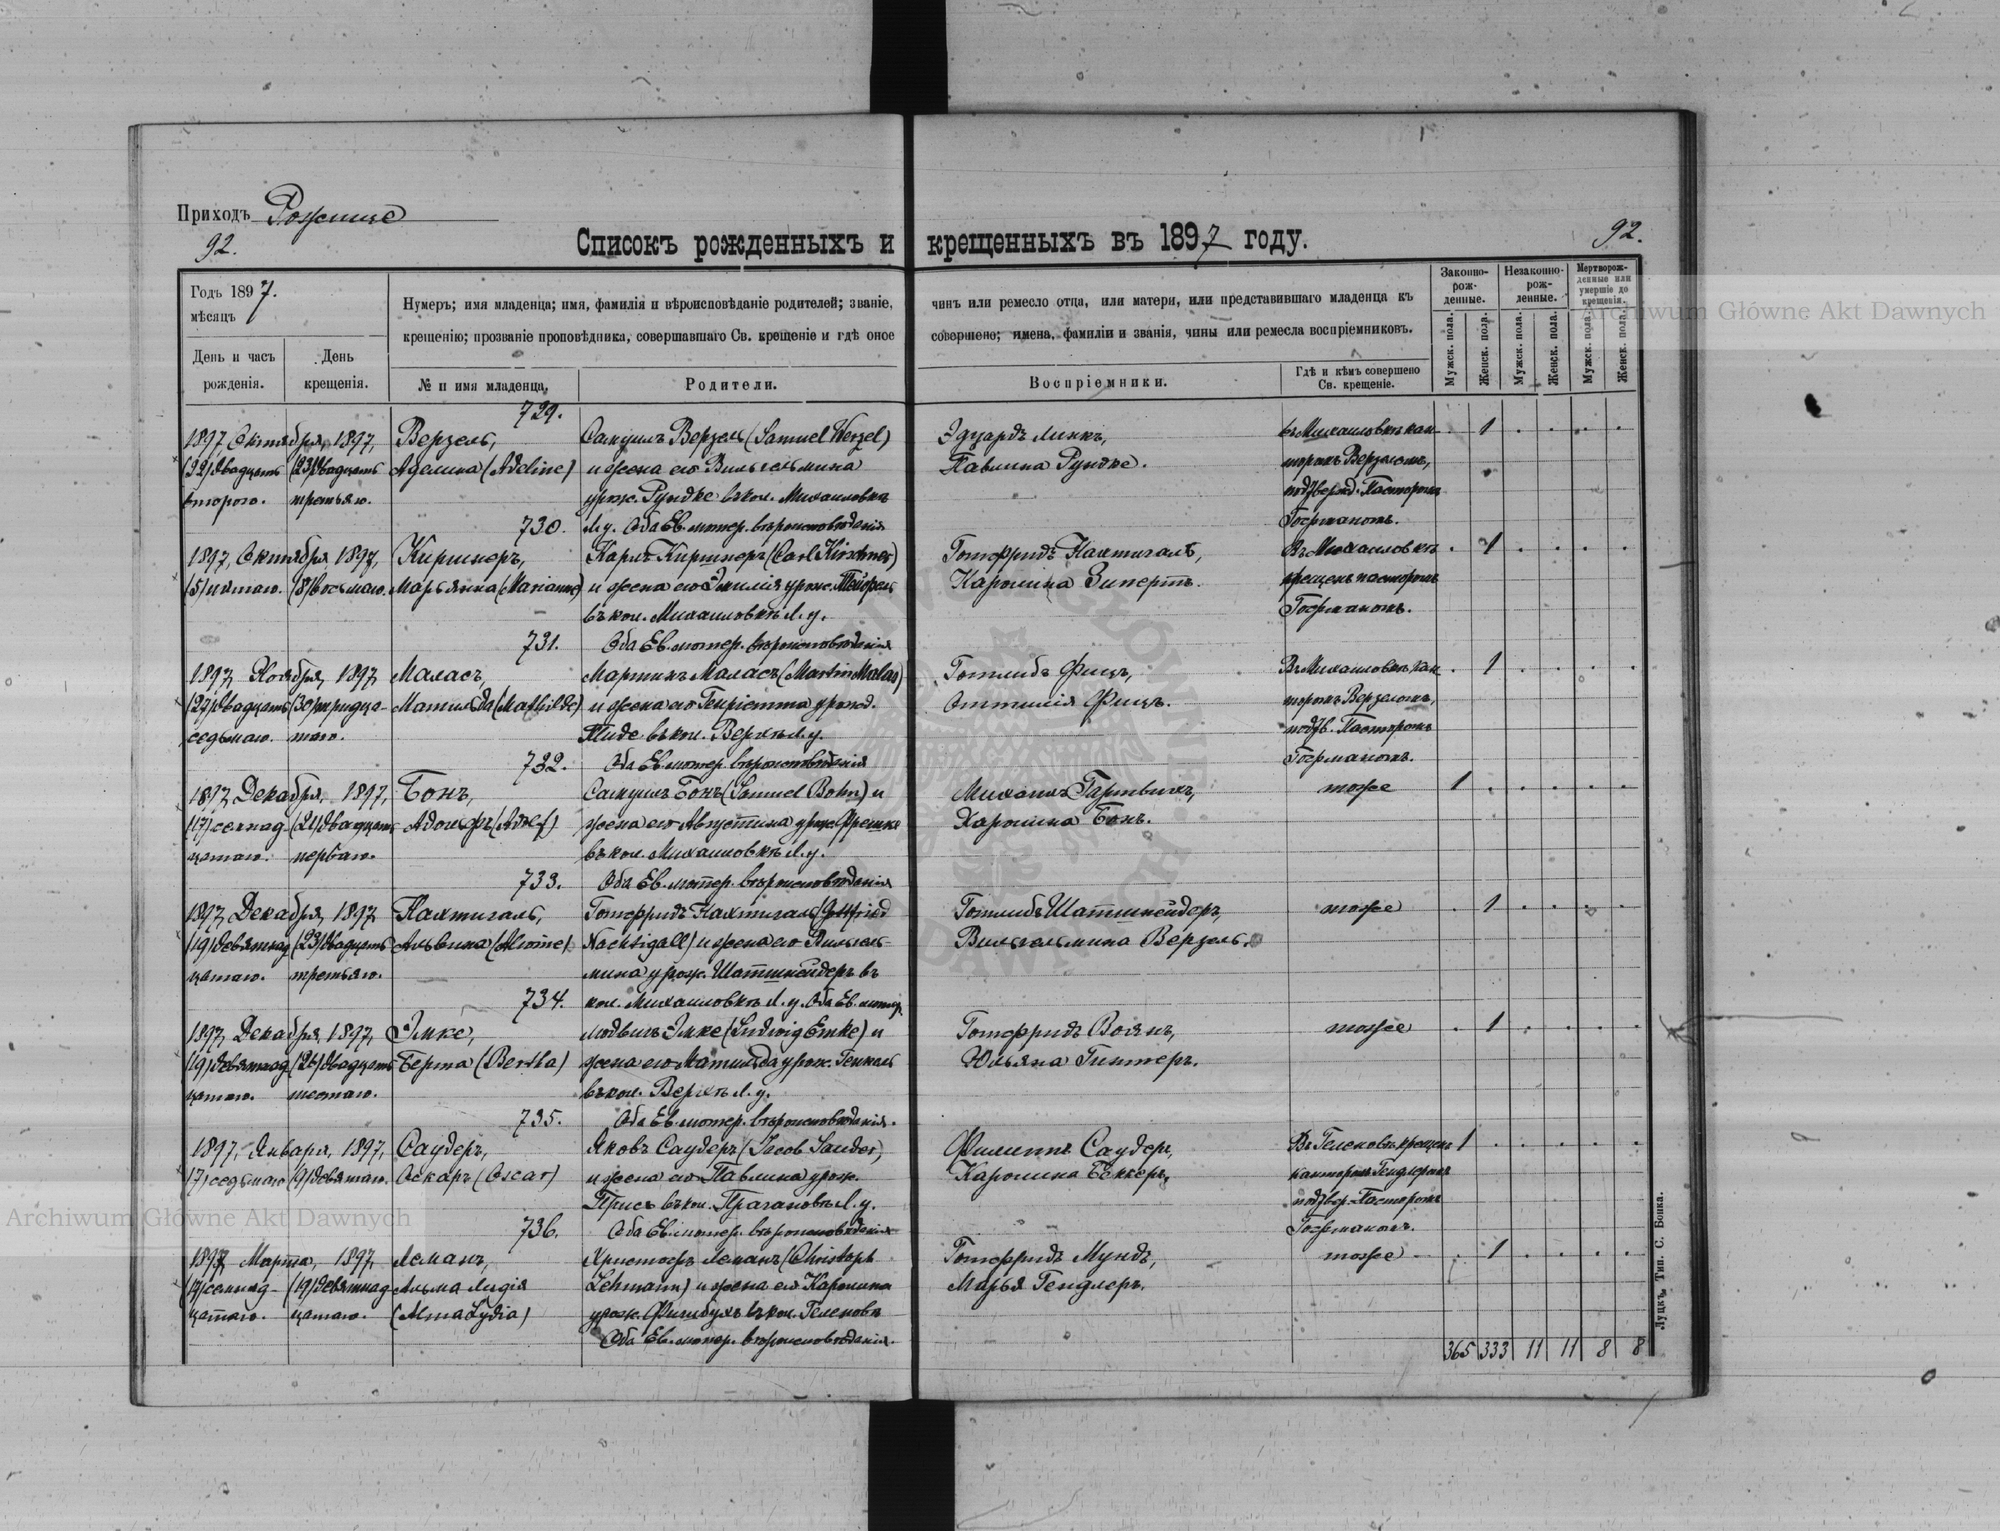 Приходъ Рожище
92.
92.
Списокъ рожденныхъ и крещенныхъ въ 1897 году.
Годъ 1897.
мѣсяцъ
День и часъ рожденія.
День крещенія.
Нумеръ; имя младенца; имя, фамилія и вѣроисповѣданіе родителей; званіе, чинъ или ремесло отца, или матери, или представившаго младенца къ
крещенію; прозваніе проповѣдника, совершавшаго Св. крещеніе и гдѣ оное совершено; имена, фамиліи и званія, чины или ремесла воспріемниковъ.
№ и имя младенца.
Родители.
Воспріемники.
Гдѣ и кѣмъ совершено Св. крещеніе.
Законно-рож-денные.
Незаконно-рож-денные.
Мертворож-денные или умершіе до крещенія.
Мужск. пола.
Женск. пола.
Мужск. пола.
Женск. пола.
Мужск. пола.
Женск. пола.
729.
1897, Октября, 1897, Верзель, Самуилъ Верзель (Samuel Werzel) Эдуардъ Линкъ, въ Михаиловкѣ кан- . 1 . . . .
(22) двадцать (23) двадцать Аделина (Adeline) и жена его Вильгельмина Павлина Рундке. торомъ Верзелемъ,
второго. третьяго. урож. Рундке въ кол. Михаиловкѣ подтвержд. Пасторомъ
730. Л. у. Оба Ев. лютер. вѣроисповѣданія Госрманомъ.
1897, Октября, 1897, Киршнеръ, Карлъ Киршнеръ (Carl Kirschner) Готфридъ Нахтигаль, Въ Михаиловкѣ . 1 . . . .
(5) пятаго. (8) восьмаго. Марьянна (Marianne) и жена его Эмилія урож. Тейфель Каролина Зипертъ. крещенъ пасторомъ
въ кол. Михаиловкѣ Л. у. Госрманомъ.
731. Оба Ев. лютер. вѣроисповѣданія
1897, Ноября, 1897, Маласъ, Мартинъ Маласъ (Martin Malas) Готлибъ Фицъ, Въ Михаиловкѣ кан . 1 . . . .
(27) двадцать (30) тридца- Матильда (Mathilde) и жена его Генріетта урожд. Оттилія Фицъ. торомъ Верзелемъ,
седьмаго. таго. Тиде въ кол. Верхѣ Л. у. подтв. Пасторомъ
732. Оба Ев. лютер. вѣроисповѣданія Госрманомъ.
1897, Декабря, 1897, Бонъ, Самуилъ Бонъ (Samuel Bohn) и Михаилъ Гартвихъ, тоже 1 . . . . .
(17) семнад- (21) двадцать Адольфъ (Adolf) жена его Августина урож. Каролина Бонъ.
цатаго. перваго. въ кол. Михаиловкѣ Л. у.
733. Оба Ев. лютер. вѣроисповѣданія
1897, Декабря, 1897, Нахтигаль, Готфридъ Нахтигаль (Gottfried Готлибъ Шатшнейдеръ, тоже . 1 . . . .
(19) девятнад (23) двадцать Альвина (Alwine) Nachtigall) и жена его Вильгель- Вильгельмина Верзель.
цатаго. третьяго. мина урож. Шатшнейдеръ въ
734. кол. Михаиловкѣ Л. у. Оба Ев. лютер.
1897, Декабря, 1897, Эмке, Людвигъ Эмке (Ludwig Emke) и Готфридъ Воянъ, тоже . 1 . . . .
(19) девятнад (26) двадцать Берта (Bertha) жена его Матильда урож. Генкель Юльяна Гинтеръ.
цатаго. шестаго. въ кол. Верхѣ Л. у.
735. Оба Ев. лютер. вѣроисповѣданія.
1897, Января, 1897, Саудеръ, Яковъ Саудеръ (Jacob Sauder) Филиппъ Саудеръ, Въ Геленовкѣ крещенъ 1 . . . . .
(7) седьмаго (9) девятаго. Оскаръ (Oscar) и жена его Павлина урож. Каролина Беккеръ, канторомъ Гендлеромъ
Присъ въ кол. Л. у. подтвер. Пасторомъ
736. Оба Ев. лютер. вѣроисповѣданія Госрманомъ.
1897, Марта, 1897, Леманъ, Христофъ Леманъ (Christoph Готфридъ Мундъ, тоже . 1 . . . .
(17) семнад- (19) девятнад Альма Лидія Lehmann) и жена его Каролина Марья Гендлеръ.
цатаго. цатаго. (Alma Lydia) урож. въ кол. Геленовкѣ
Оба Ев. лютер. вѣроисповѣданія.
365 333 11 11 8 8
Луцкъ, Тип. С. Бонка.
Archiwum Główne Akt Dawnych
Archiwum Główne Akt Dawnych